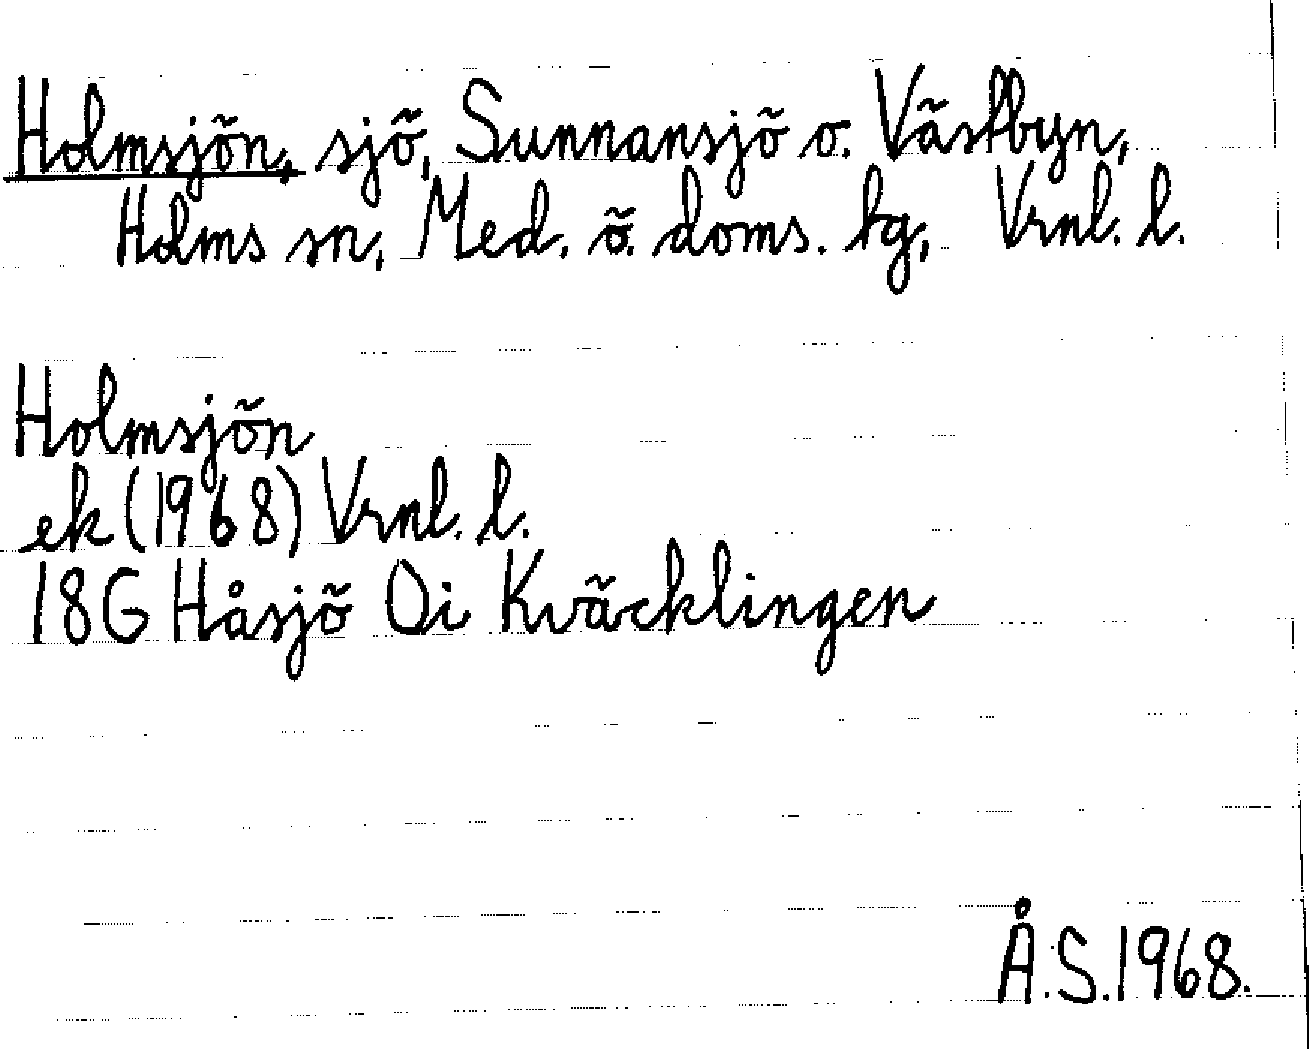 Holmsjön, sjö, Sunnansjö o. Västbyn,
Holms sn, Med. ö. doms. tg, Vrnl. l.
Holmsjön
ek (1968) Vrnl. l.
18G Håsjö 0i Kväcklingen
Å.S.1968.